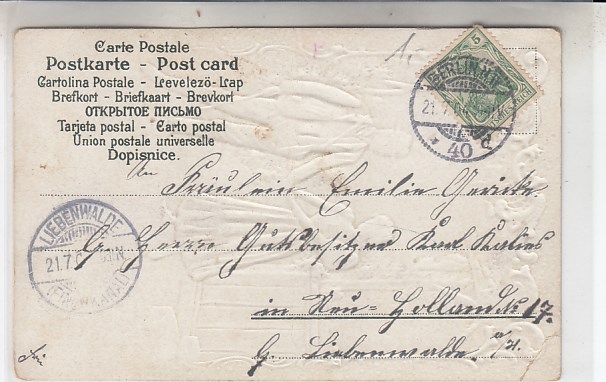 Carte Postale
Postkarte - Post card
Cartolina Postale - Levelező-Lap
Brefkort - Briefkaart - Brevkort
ОТКРЫТОЕ ПИСЬМО
Tarjeta postal - Carto postal
Union postale universelle
Dopisnice.
5
BERLIN
21.7.
* 40 d
An
Fräulein Emilie Gericke
LIEBENWALDE
21.7.
N
Herrn Gutsbesitzer Karl
in Neu-Holland № 17.
b. Liebenwalde a/H.